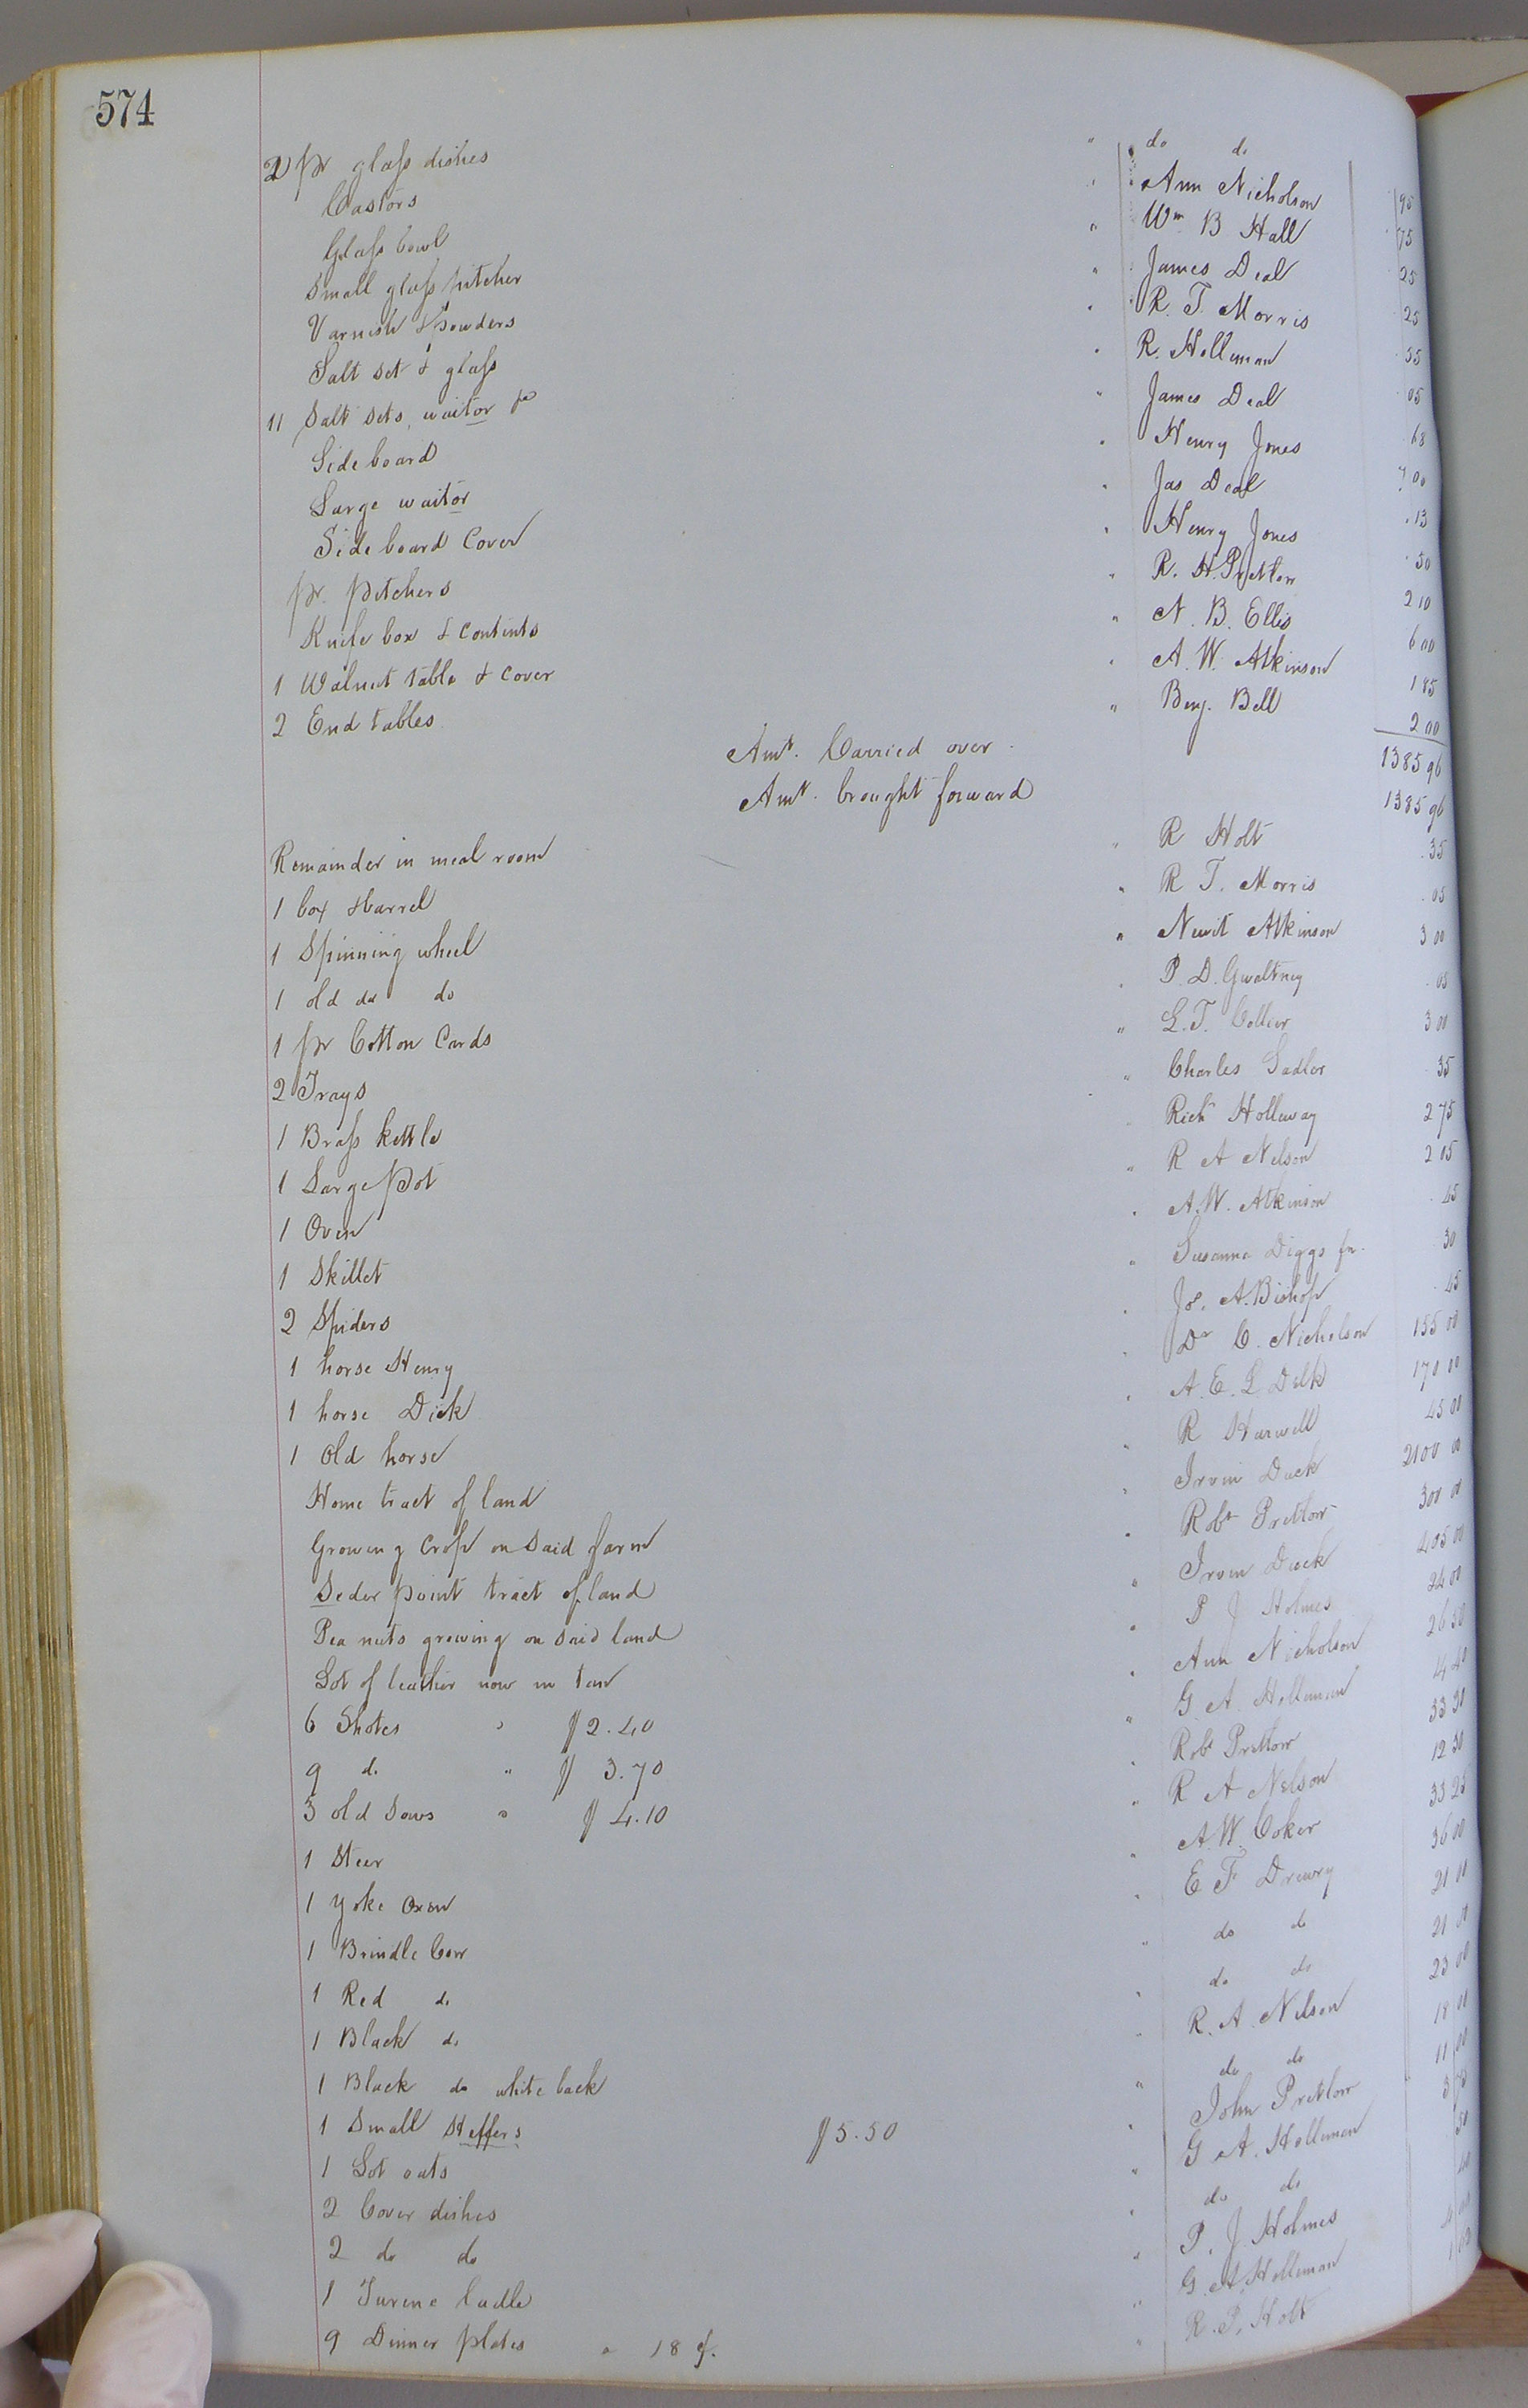 574
2 pr glass dishes " do do 95
Castors " Ann Nicholson 75
Glass bowl " Wm B Hall 25
Small glass pitcher " James Deal 25
Varnish & powders " R. T. Morris 55
Salt set & glass " R. Holleman 05
11 Salt sets, waitor " James Deal 68
Sideboard " Henry Jones 7 00
Large waitor " Jas Deal 13
Sideboard Cover " Henry Jones 50
pr. pitchers " R. H. Pretlow 2 10
Knife box & contents " N. B. Ellis 6 00
1 Walnut table & cover " A. W. Atkinson 1 85
2 End tables " Benj. Bell 2 00
Amt. Carried over 1385 96
Amt. brought forward 1385 96
Remainder in meal room " R Holt 35
1 box & barrel " R T. Morris 05
1 Spinning wheel " Newit Atkinson 3 00
1 old do do " P. D. Gwaltney 05
1 pr Cotton Cards " L. T. Collier 3 00
2 Trays " Charles Sadler 35
1 Brass kettle " Richd Holloway 2 75
1 Large Pot " R A Nelson 2 15
1 Oven " A. W. Atkinson 45
1 Skillet " Susanna Diggs 30
2 Spiders " Jo. A. Bishop 45
1 horse Henry " Dr C. Nicholson 155 00
1 horse Dick " A. E. L Delk 170 00
1 Old horse " R Harwell 45 00
Home tract of land " Irvin Duck 2100 00
Growing Crop on Said farm " Robt Pretlow 300 00
Seder point tract of land " Irvin Duck 405 00
Pea nuts growing on Said land " P J Holmes 24 00
Lot of leather now in tan " Ann Nicholson 26 50
6 Shotes " $2.40 " G. A. Holleman 14 40
9 do " $3.70 " Robt Pretlow 33 30
3 old Sows " $4.10 " R A Nelson 12 30
1 Steer " A. W. Coker 33 25
1 yoke Oxen " E F Drewry 36 00
1 Brindle Cow " do do 21 00
1 Red do " do do 21 00
1 Black do " R. A. Nelson 23 00
1 Black do white back " do do 18 00
1 Small Heffers $5.50 " John Pretlow 11 00
1 Lot oats " G. A. Holleman
2 Cover dishes " do do 50
2 do do " P. J. Holmes
1 Turene ladle " G. A. Holleman
9 Dinner plates " 18 ¢. " R. P. Holt